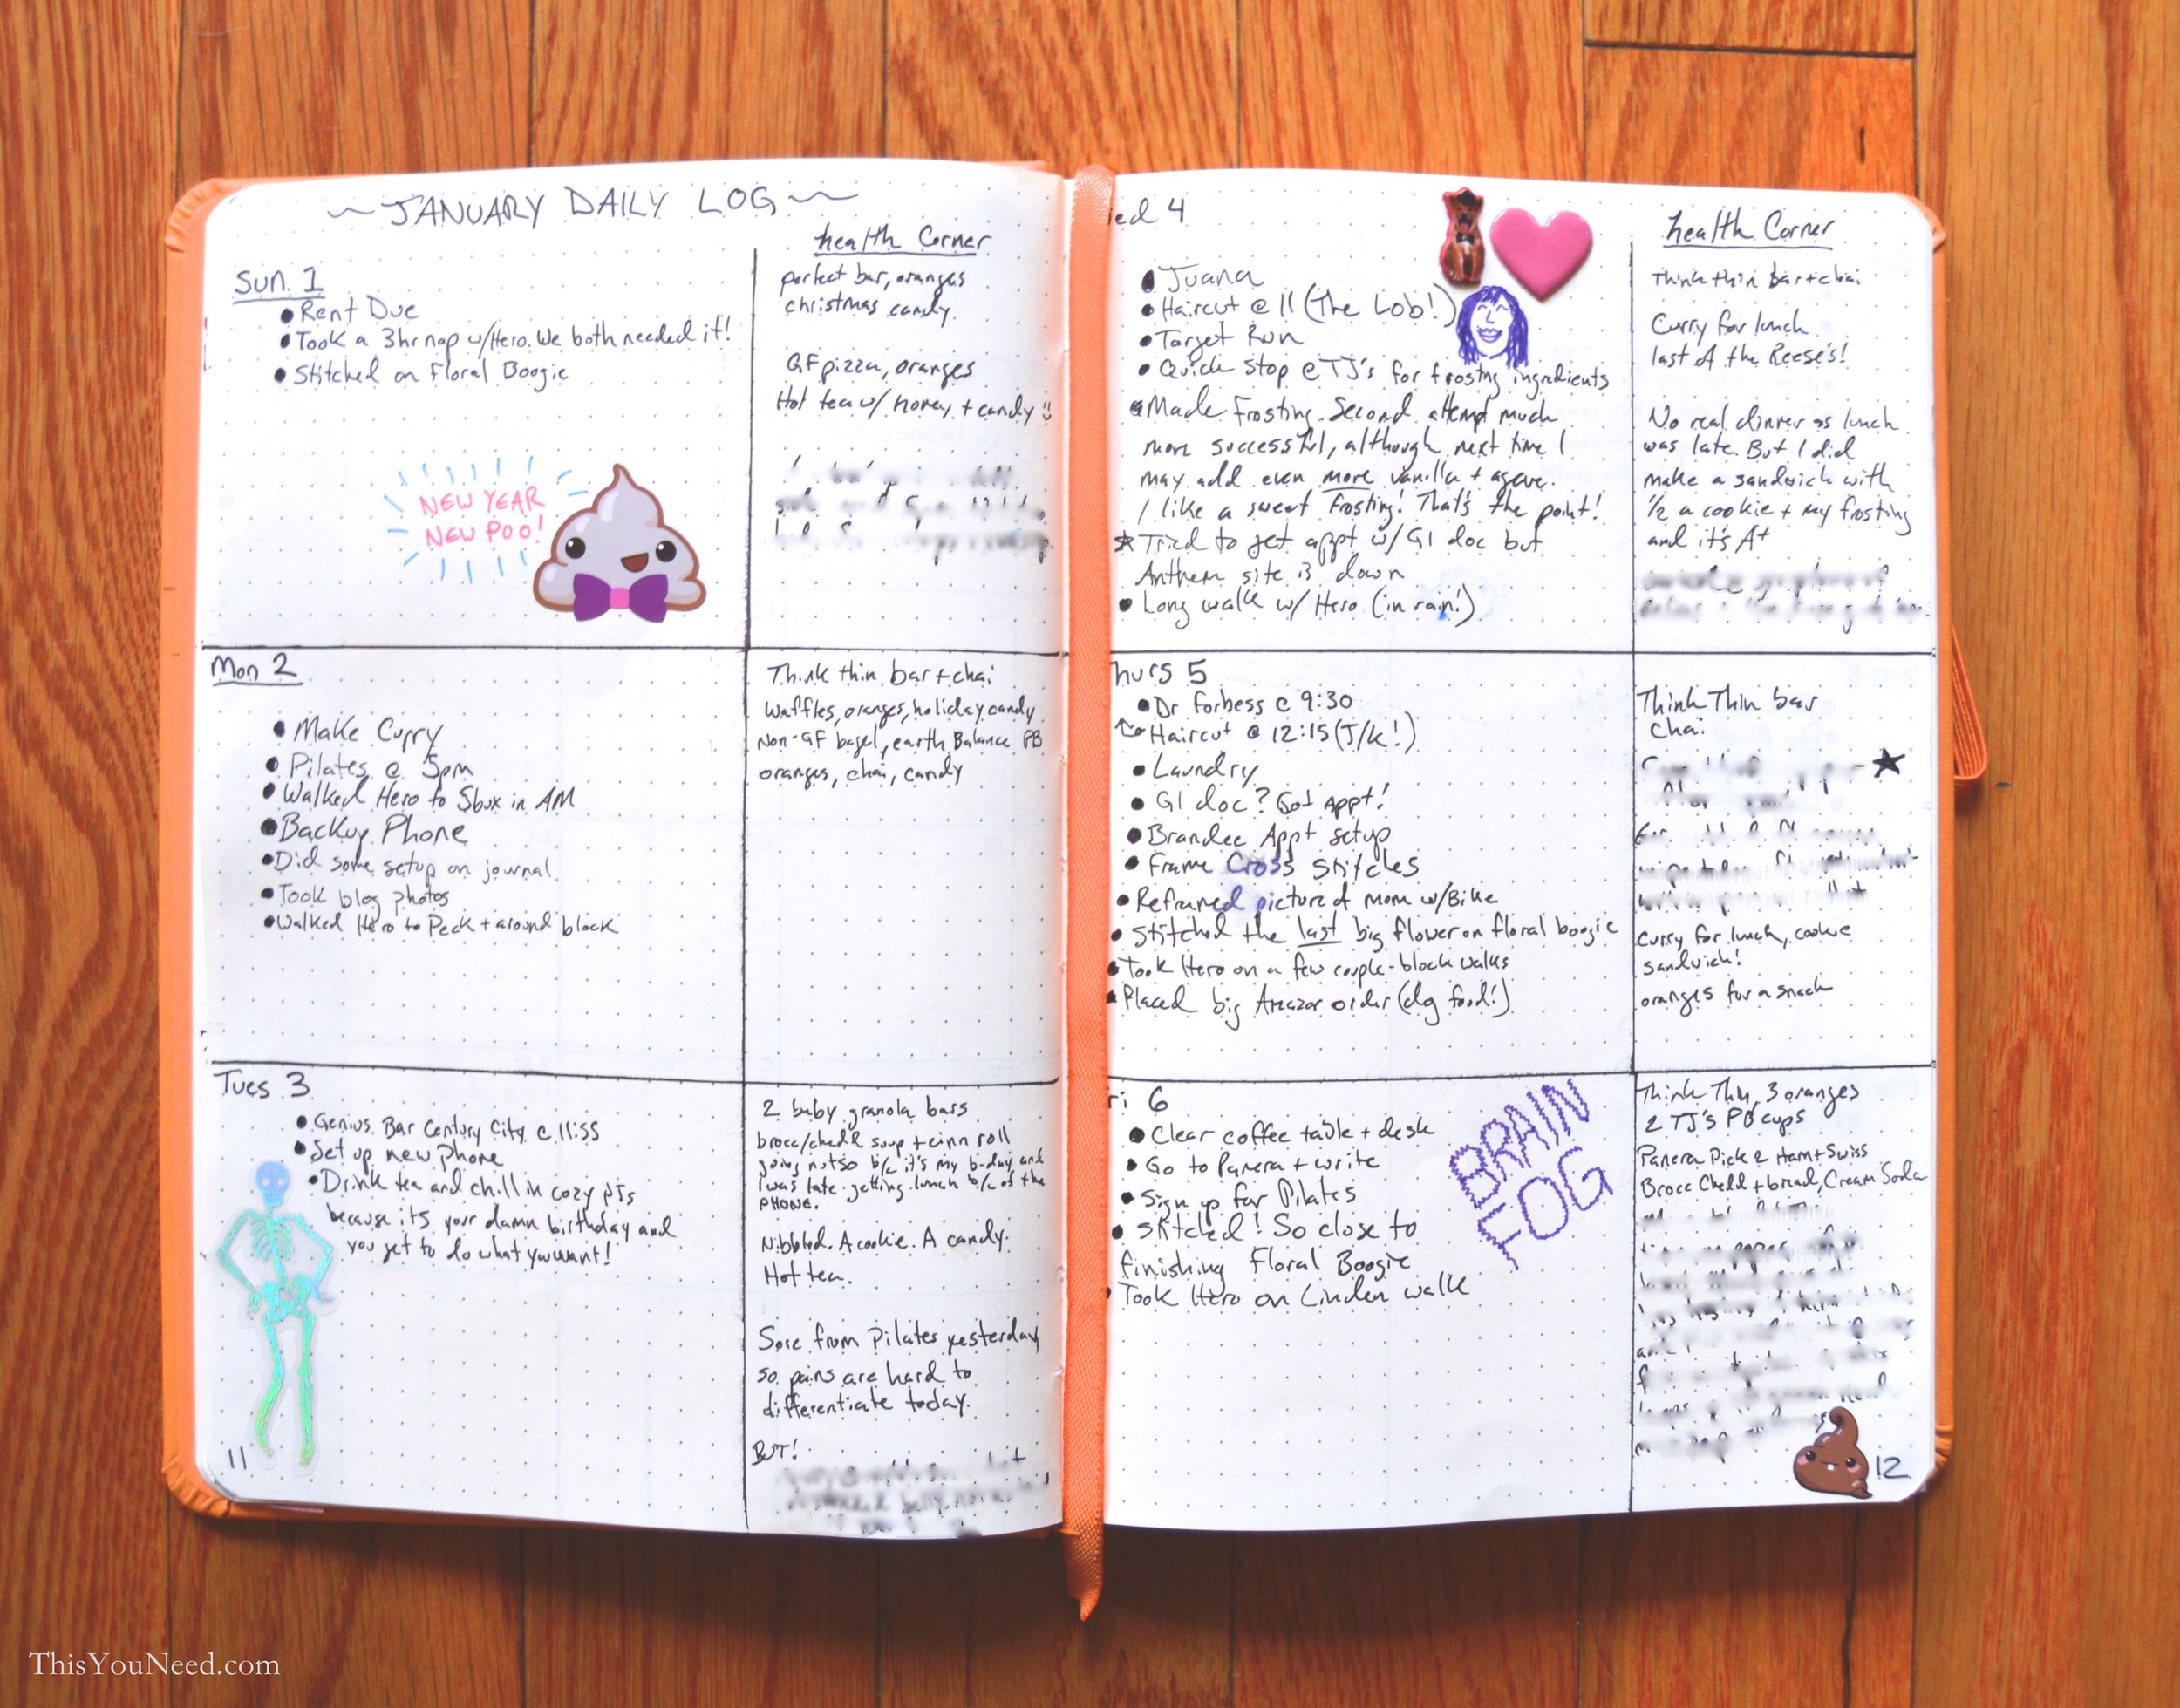 ~JANUARY DAILY LOG~
health Corner
Sun 1
• Rent Due
• Took a 3hr nap w/Hero. We both needed it!
• Stitched on Floral Boogie
NEW YEAR
NEW POO!
perfect bar, oranges
christmas candy.
GF pizza, oranges
Hot tea w/ honey + candy
Mon 2
• Make Curry
• Pilates @ 5pm
• Walked Hero to Sbux in AM
• Backup Phone
• Did some setup on journal
• Took blog photos
• Walked Hero to Peck + around block
Think thin bar + chai
Waffles, oranges, holiday candy
Non-GF bagel, earth Balance PB
oranges, chai, candy
Tues 3
• Genius Bar Century City @ 11:55
• Set up new phone
• Drink tea and chill in cozy PJs
because it's your damn birthday and
you get to do what you want!
2 baby granola bars
brocc/chedd soup + cinn roll
going nutso b/c it's my b-day and
I was late getting lunch b/c of the
PHONE.
Nibbled. A cookie. A candy.
Hot tea.
Sore from Pilates yesterday
so pains are hard to
differentiate today.
BUT!
11
ed 4
• Juana
• Haircut @ 11 (The Lob!)
• Target Run
• Quick Stop @ TJ's for frosting ingredients
• Made Frosting. Second attempt much
more successful, although next time I
may add even more vanilla + agave.
I like a sweet frosting! That's the point!
★ Tried to get appt w/ GI doc but
Anthem site is down
• Long walk w/ Hero (in rain!)
health Corner
Think thin bar + chai
Curry for lunch
last of the Reese's!
No real dinner as lunch
was late. But I did
make a sandwich with
1/2 a cookie + my frosting
and it's A+
hurs 5
• Dr Forbess @ 9:30
Haircut @ 12:15 (J/k!)
• Laundry
• GI doc? Got Appt!
• Brandee Appt setup
• Frame Cross Stitches
• Reframed picture of mom w/Bike
• Stitched the last big flower on floral boogie
• Took Hero on a few couple-block walks
• Placed big Amazon order (dog food!)
Think Thin bar
Chai
★
Curry for lunch, cookie
sandwich!
oranges for a snack
ri 6
• Clear coffee table + desk
• Go to Panera + write
• Sign up for Pilates
• Stitched! So close to
finishing Floral Boogie
• Took Hero on Linden walk
BRAIN
FOG
Think Thin, 3 oranges
2 TJ's PB cups
Panera Pick 2 Ham + Swiss
Brocc Chedd + bread, Cream Soda
12
ThisYouNeed.com